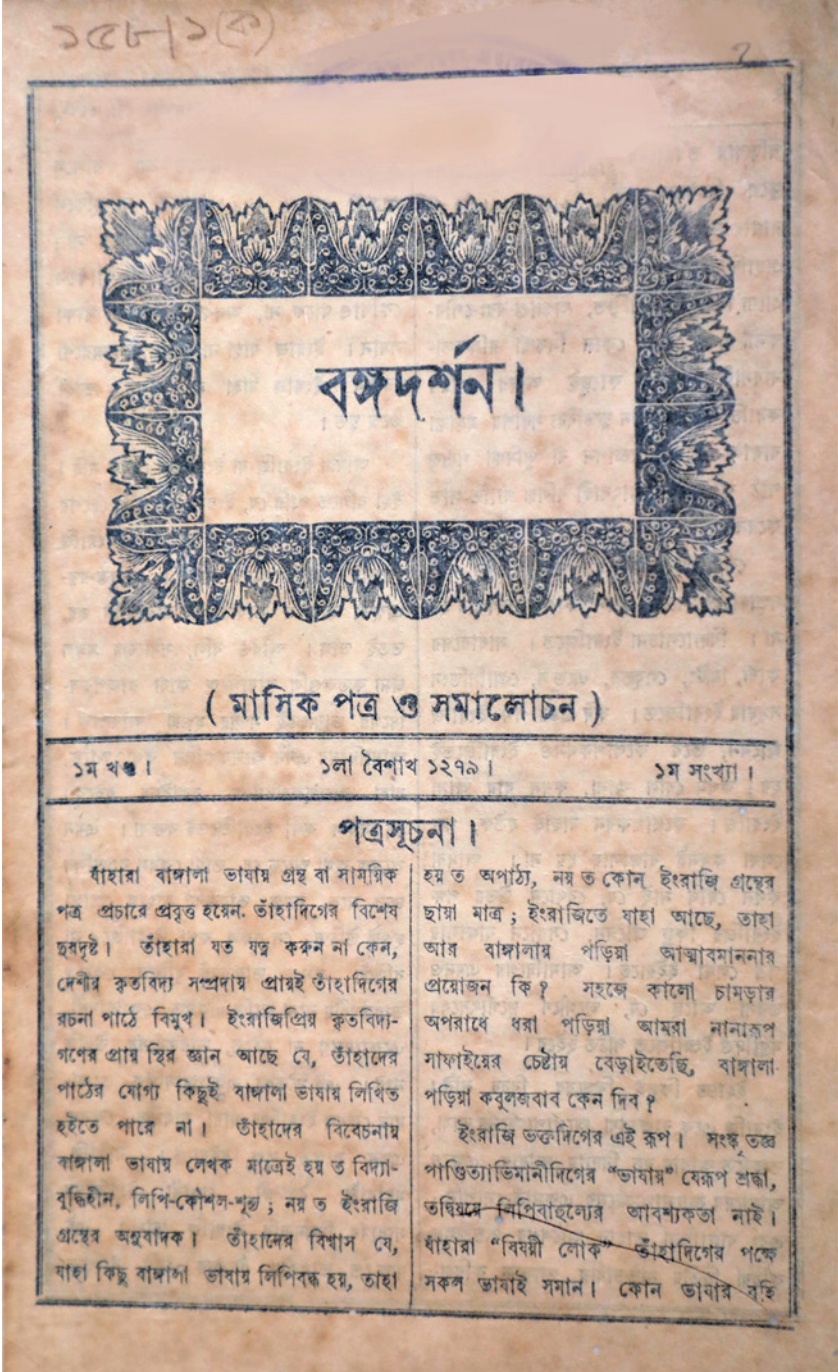 ১৫৮/১(ক)
২
বঙ্গদর্শন।
( মাসিক পত্র ও সমালোচন )
১ম খণ্ড। ১লা বৈশাখ ১২৭৯। ১ম সংখ্যা।
পত্রসূচনা।
যাঁহারা বাঙ্গালা ভাষায় গ্রন্থ বা সাময়িক
পত্র প্রচারে প্রবৃত্ত হয়েন. তাঁহাদিগের বিশেষ
দুরদৃষ্ট। তাঁহারা যত যত্ন করুন না কেন,
দেশীয় কৃতবিদ্য সম্প্রদায় প্রায়ই তাঁহাদিগের
রচনা পাঠে বিমুখ। ইংরাজিপ্রিয় কৃতবিদ্য-
গণের প্রায় স্থির জ্ঞান আছে যে, তাঁহাদের
পাঠের যোগ্য কিছুই বাঙ্গালা ভাষায় লিখিত
হইতে পারে না। তাঁহাদের বিবেচনায়
বাঙ্গালা ভাষায় লেখক মাত্রেই হয় ত বিদ্যা-
বুদ্ধিহীন, লিপি-কৌশল-শূন্য ; নয় ত ইংরাজি
গ্রন্থের অনুবাদক। তাঁহাদের বিশ্বাস যে,
যাহা কিছু বাঙ্গালা ভাষায় লিপিবদ্ধ হয়, তাহা
হয় ত অপাঠ্য, নয় ত কোন ইংরাজি গ্রন্থের
ছায়া মাত্র ; ইংরাজিতে যাহা আছে, তাহা
আর বাঙ্গালায় পড়িয়া আত্মাবমাননার
প্রয়োজন কি ? সহজে কালো চামড়ার
অপরাধে ধরা পড়িয়া আমরা নানারূপ
সাফাইয়ের চেষ্টায় বেড়াইতেছি, বাঙ্গালা
পড়িয়া কবুলজবাব কেন দিব ?
ইংরাজি ভক্তদিগের এই রূপ। সংস্কৃতজ্ঞ
পাণ্ডিত্যাভিমানীদিগের “ভাষায়” যেরূপ শ্রদ্ধা,
তদ্বিষয়ে লিপিবাহুল্যের আবশ্যকতা নাই।
যাঁহারা “বিষয়ী লোক” তাঁহাদিগের পক্ষে
সকল ভাষাই সমান। কোন ভাষার বহি